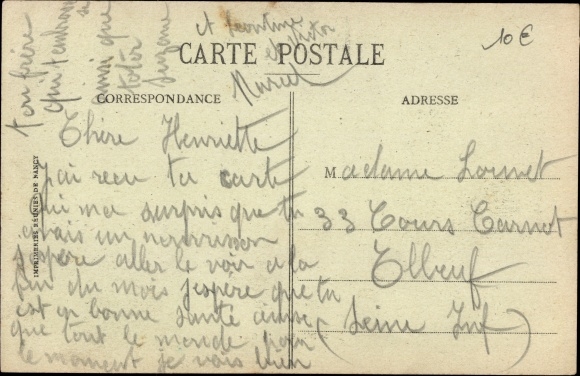 CARTE POSTALE
10€
CORRESPONDANCE
ADRESSE
Chère Henriette
J'ai recu ta carte
qui ma surpris que tu
avais un nourrisson
j'espère aller le voir a la
fin du mois j'espère que tu
est en bonne santé
que tout le monde pour
le moment je vais bien
ton frère
qui t'embrasse
ainsi que
totor
Suzanne
et
et
Marcel
Madame Louvet
33 Cours Carnot
Elbeuf
(Seine Inf)
IMPRIMERIES RÉUNIES DE NANCY